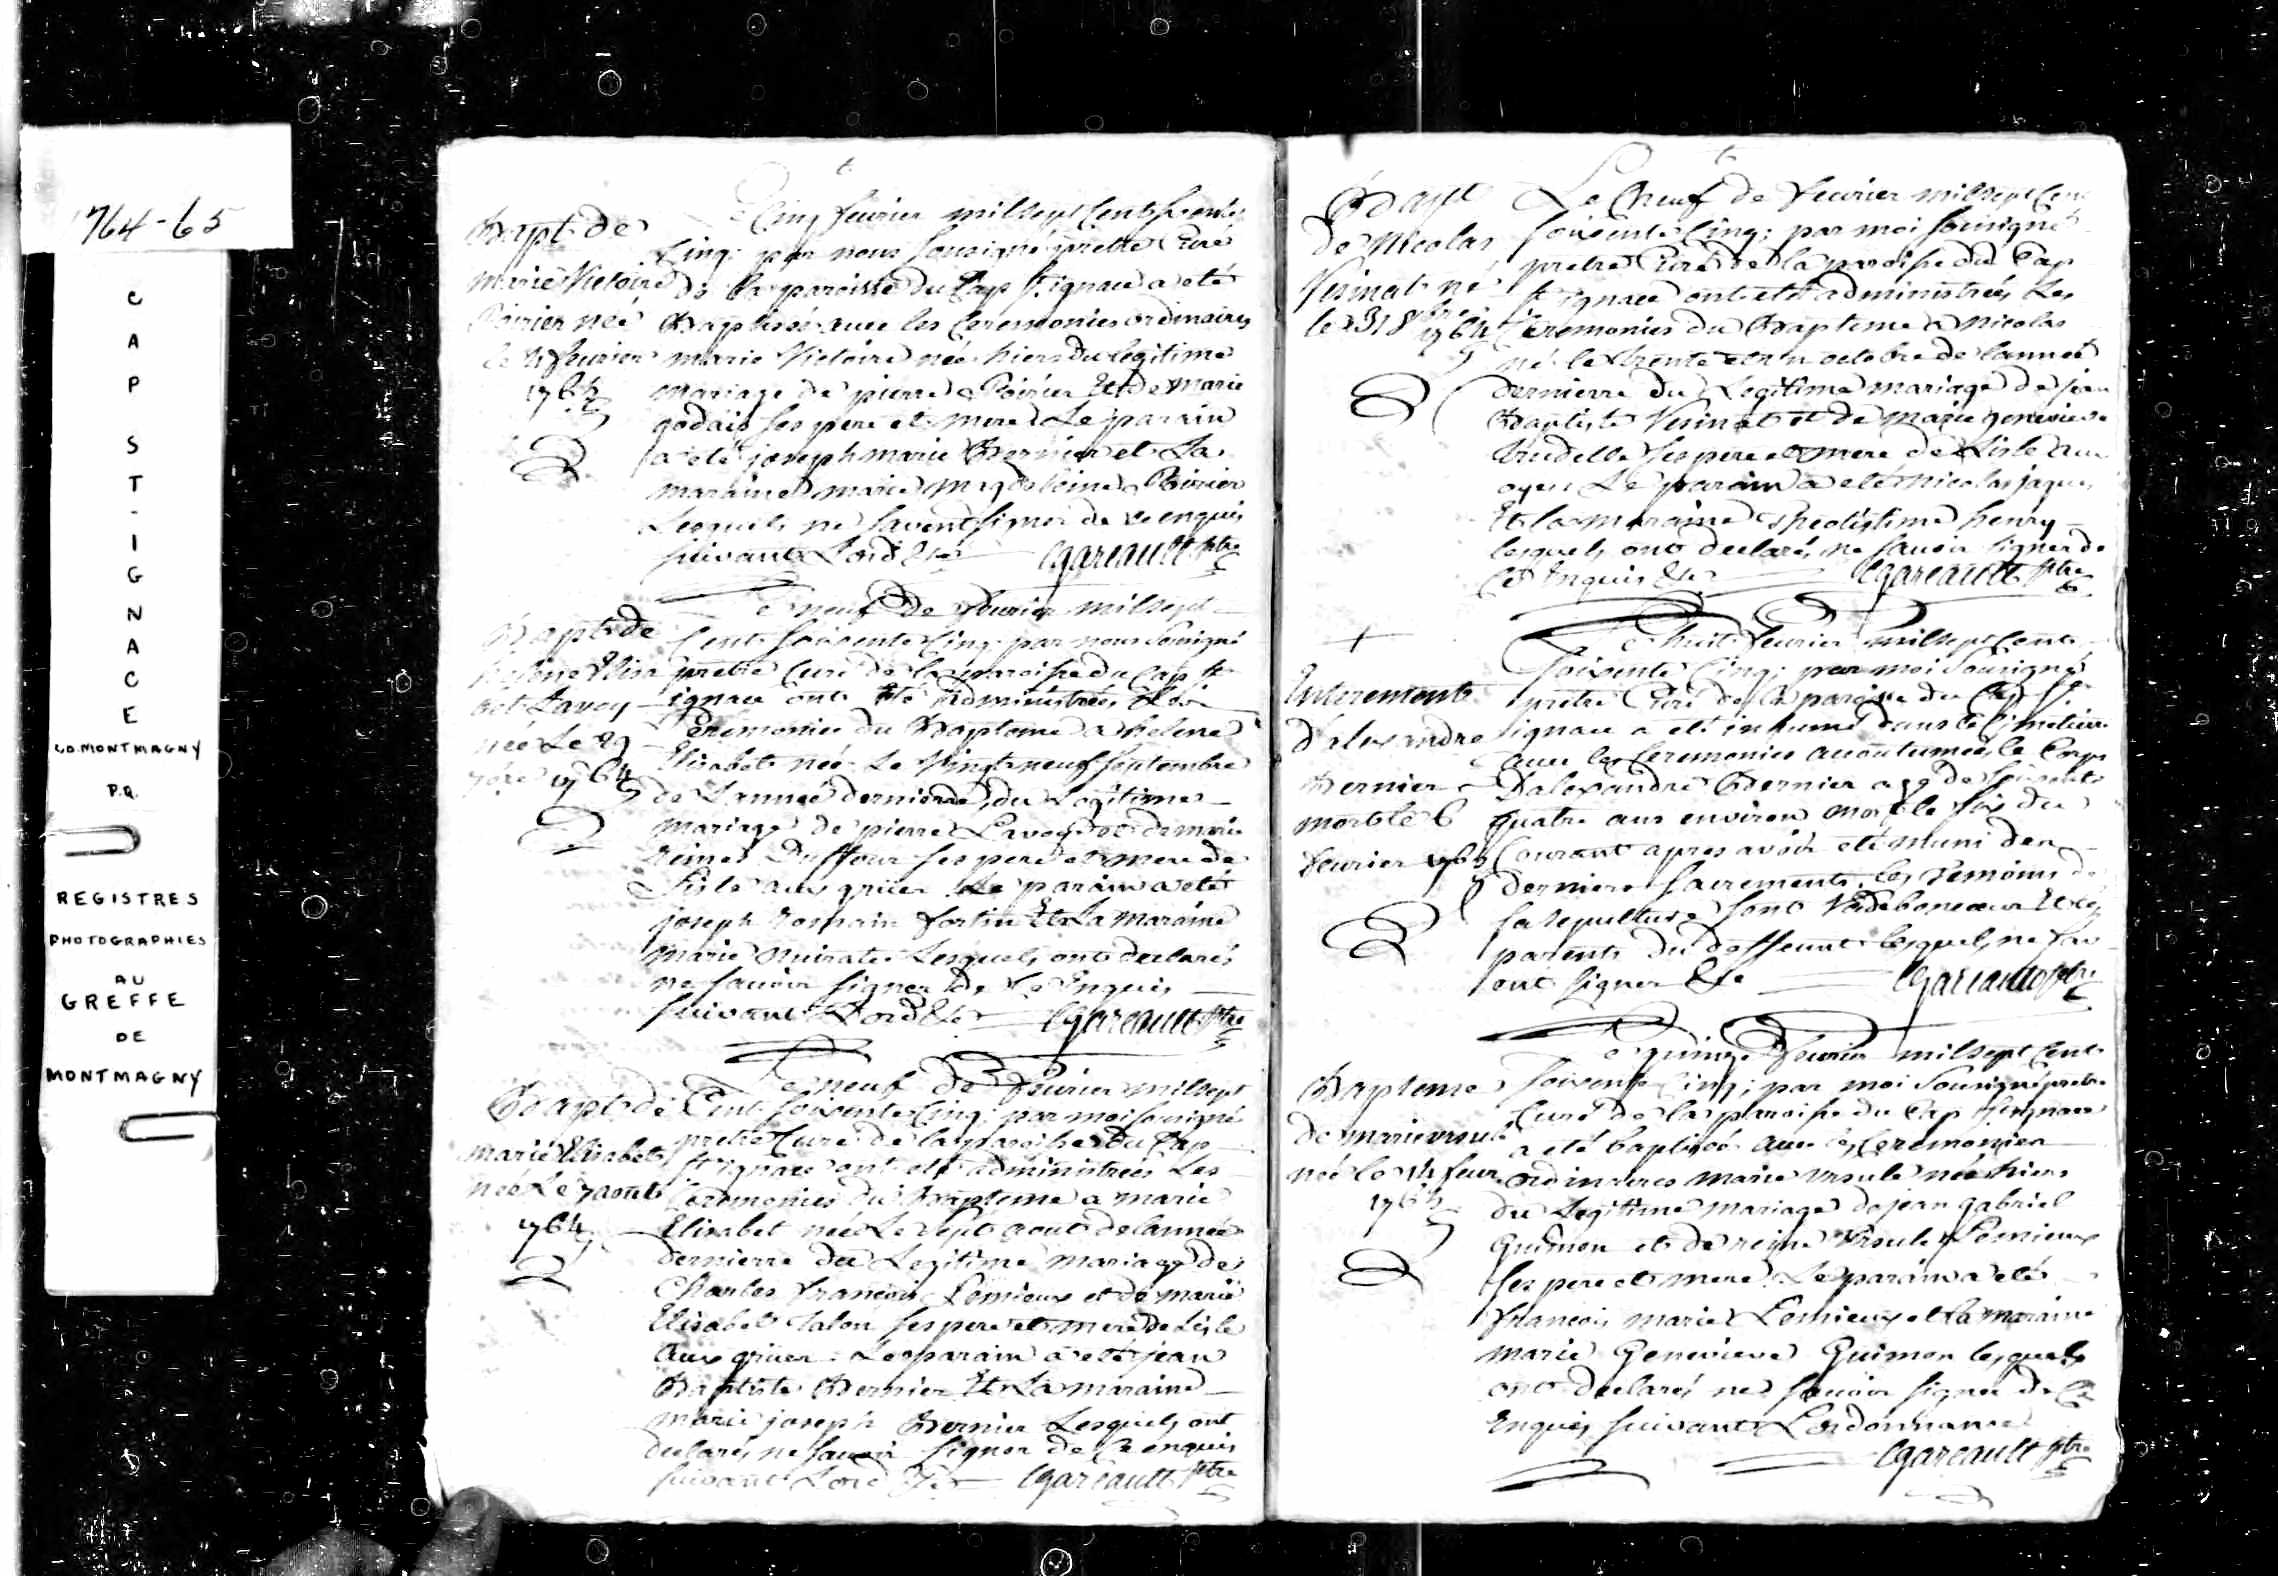 1764-65
CAP ST-IGNACE
CO. MONTMAGNY
P.Q.
REGISTRES
PHOTOGRAPHIES
AU
GREFFE
DE
MONTMAGNY
Bapt de
marie Victoire
Poirier née
le 4 fevrier
1765
Le Cinq fevrier mil sept Cent soixente
Cinq; par nous sousigné pretre Curé
de la paroisse du Cap St ignace a eté
Baptissé avec les Ceremonies ordinaires
marie Victoire née hier du legitime
mariage de pierre Poirier Et de marie
godais ses pere et mere Le parain
a eté joseph marie Bernier et La
maraine marie magdeleine Poirier
Lesquels ne savent signer de ce enquis
suivant Lord &c Cgareault ptre
Bapt de
helene Elisa
bet Lavoy
née Le 29
7bre 1764
Le neuf de fevrier mil sept
Cent soixente Cinq par nous sousigné
pretre Curé de la paroisse du Cap St
ignace ont eté administrées Les
Ceremonies du Bapteme a helene
Elisabet née Le Vingt neuf septembre
de L'année dernierre, du Legitime
mariage de pierre Lavoy et de marie
Duffour ses pere et mere de
Lisle aux gruer Le parain a eté
joseph romain fortin Et La maraine
marie Lesquels ont declarés
ne savoir signer de Ce Enquis
suivant Lord &c Cgareault ptre
Bapt de
marie Elisabet
née Le 7 aout
1764
Le neuf de fevrier mil sept
Cent soixente Cinq; par moi sousigné
pretre Curé de la paroisse du Cap
St ignace ont eté administrées Les
Ceremonies du Bapteme a marie
Elisabet née Le sept aout de lannée
dernierre du Legitime mariage de
Charles francois Lemieux et de marie
Elisabet talon ses pere et mere de Lisle
aux gruer. Le parain a eté jean
Baptiste Bernier Et La maraine
marie joseph Bernier Lesquels ont
declarés ne savoir signer de Ce enquis
suivant Lord &c Cgareault ptre
Bapt
de Nicolas
Vesinat né
le 31 8bre 1764
Le Neuf de fevrier mil sept Cent
soixente Cinq; par moi sousigné
pretre Curé de la paroisse du Cap
St ignace ont eté administrées Les
Ceremonies du Bapteme a Nicolas
né le trente et un octobre de lannée
dernierre du Legitime mariage de jean
Baptiste Vesinat et de marie genevieve
trudelle ses pere et mere de Lisle aux
Le parain a eté Nicolas jaques
Et la maraine henry
lesquels ont declarés ne savoir signer de
Ce Enquis &c Cgareault ptre
+
Enterement
d'alexandre
Bernier
mort le 6
fevrier 1765
Le huit fevrier mil sept Cent
soixente Cinq; par moi sousigné
pretre Curé de la paroisse du Cap St
ignace a eté inhumé dans le Cimetiere
avec les Ceremonies acoutumées le Corps
D'alexandre Bernier agé de soixente
quatre ans environ mort le six du
Courant apres avoir eté muni des
derniers sacrements. les temoins de
sa sepulture sont Vadeboncoeur Et les
parents du deffunt lesquels ne sav
ent signer &c Cgareault ptre
Bapteme
de marie ursule
née le 14 fevr
1765
Le quinze fevrier mil sept Cent
soixente Cinq; par moi sousigné pretre
Curé de la paroisse du Cap St ignace
a eté baptisée avec les Ceremonies
ordinaires marie ursule née hier
du Legitime mariage de jean gabriel
Guimon et de reine Ursule Lemieux
ses pere et mere. Le parain a eté
francois marie Lemieux et la maraine
marie Genevieve Guimon lesquels
ont declarés ne savoir signer de Ce
Enquis suivant Lordonnance
Cgareault ptre